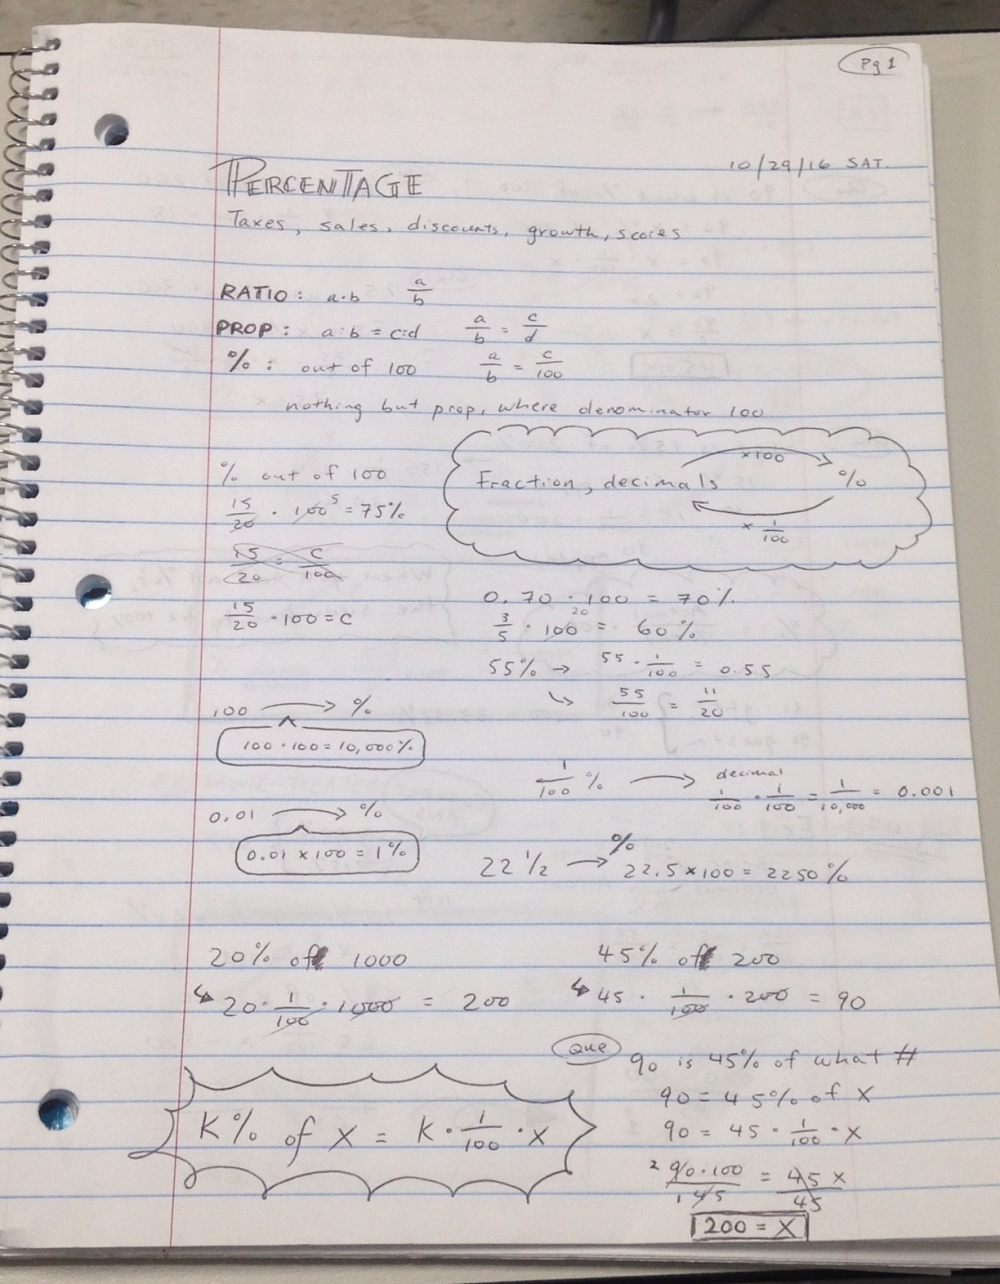 Pg 1
10/29/16 SAT.
PERCENTAGE
Taxes, sales, discounts, growth, scores
RATIO: a·b a/b
PROP: a:b = c:d a/b = c/d
%: out of 100 a/b = c/100
nothing but prop, where denominator 100
% out of 100
15/20 · 100 5 = 75%
15/20 = c/100
15/20 · 100 = c
Fraction, decimals ×100 → %
← × 1/100
0.70 · 100 = 70%
3/5 · 100 20 = 60%
55% → 55 · 1/100 = 0.55
↳ 55/100 = 11/20
100 → %
100 · 100 = 10,000%
1/100 % → decimal
1/100 · 1/100 = 1/10,000 = 0.001
0.01 → %
0.01 × 100 = 1%
22 1/2 → %
22.5 × 100 = 2250%
20% of 1000
↳ 20 · 1/100 · 1000 = 200
45% of 200
↳ 45 · 1/100 · 200 = 90
K% of X = K · 1/100 · X
Que 90 is 45% of what #
90 = 45% of X
90 = 45 · 1/100 · X
2 90·100 / 1 45 = 45 X / 45
200 = X